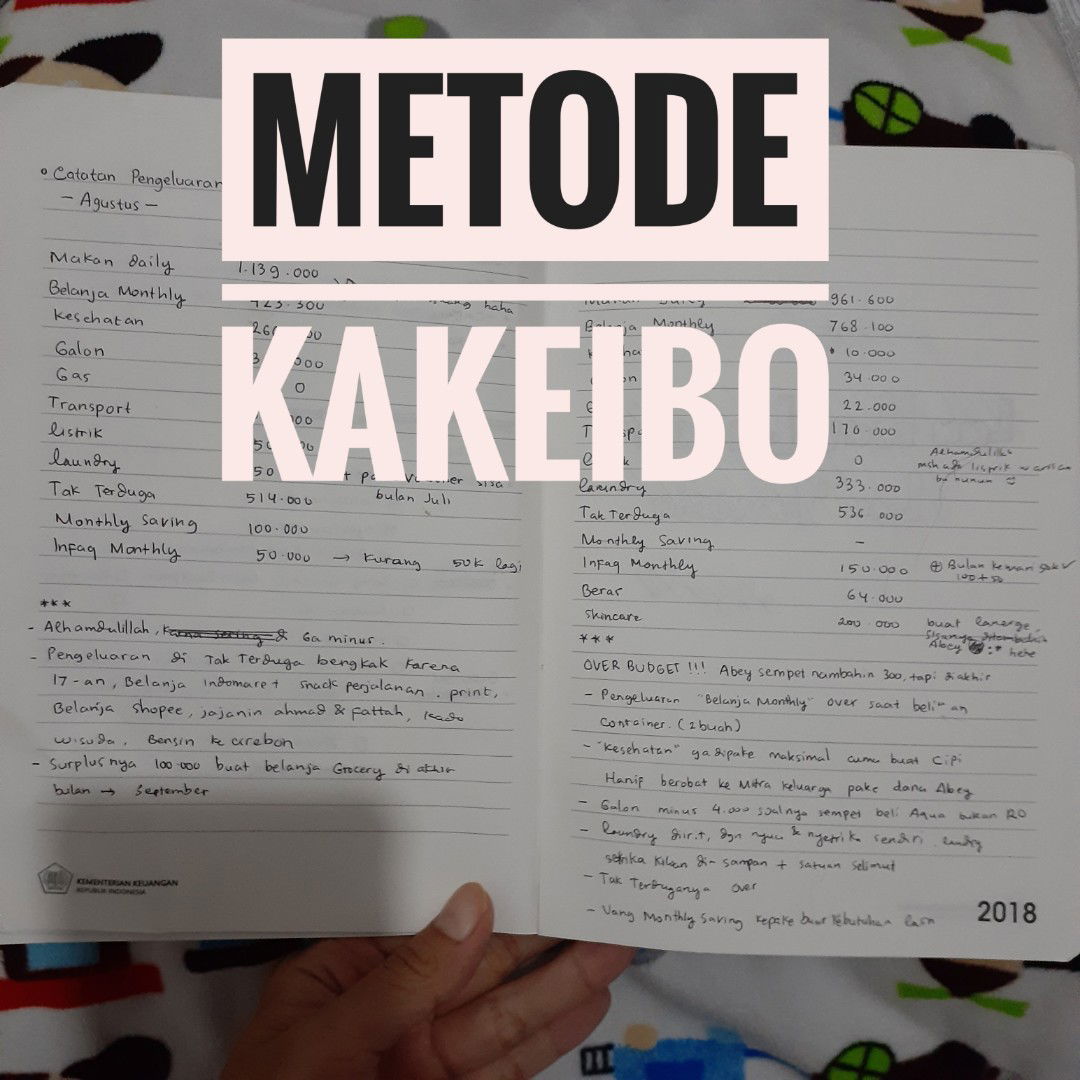 METODE
KAKEIBO
• Catatan Pengeluaran
- Agustus -
Makan daily 1.139.000
Belanja Monthly 423.300 haha
Kesehatan
Galon
Gas 0
Transport
listrik
laundry 50
Tak Terduga 514.000 bulan Juli
Monthly Saving 100.000
Infaq Monthly 50.000 → Kurang 50k lagi
***
- Alhamdulillah, Ga minus.
- Pengeluaran di Tak Terduga bengkak karena
17-an, Belanja Indomaret snack perjalanan, print,
Belanja Shopee, jajanin ahmad & fattah, kado
wisuda, Bensin ke cirebon
- Surplusnya 100.000 buat belanja Grocery di akhir
bulan → September
KEMENTERIAN KEUANGAN
REPUBLIK INDONESIA
961.600
Belanja Monthly 768.100
10.000
34.000
22.000
170.000
0 Alhamdulillah
msh ada listrik warisan
laundry 333.000
Tak Terduga 536.000
Monthly Saving -
Infaq Monthly 150.000 + Bulan kemarin 50k ✓
100+50
Beras 64.000
Skincare 200.000 buat
Abey hehe
***
OVER BUDGET !!! Abey sempet nambahin 300, tapi diakhir
- Pengeluaran "Belanja Monthly" over saat beli" an
Container. (2 buah)
- "Kesehatan" ga dipake maksimal cuma buat Cipi
Hanif berobat ke Mitra Keluarga pake dana Abey
- Galon minus 4.000 soalnya sempet beli Aqua bukan RO
- laundry dgn nyuci & nyetrika sendiri
setrika kiloan + satuan selimut
- Tak Terduganya over
- Uang Monthly Saving kepake buat kebutuhan lain
2018